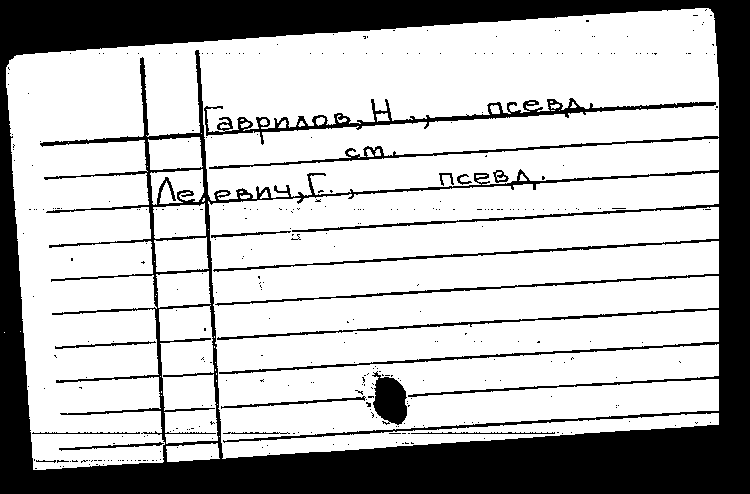 Гаврилов, Н., псевд.
ст.
Лелевич, Г., псевд.